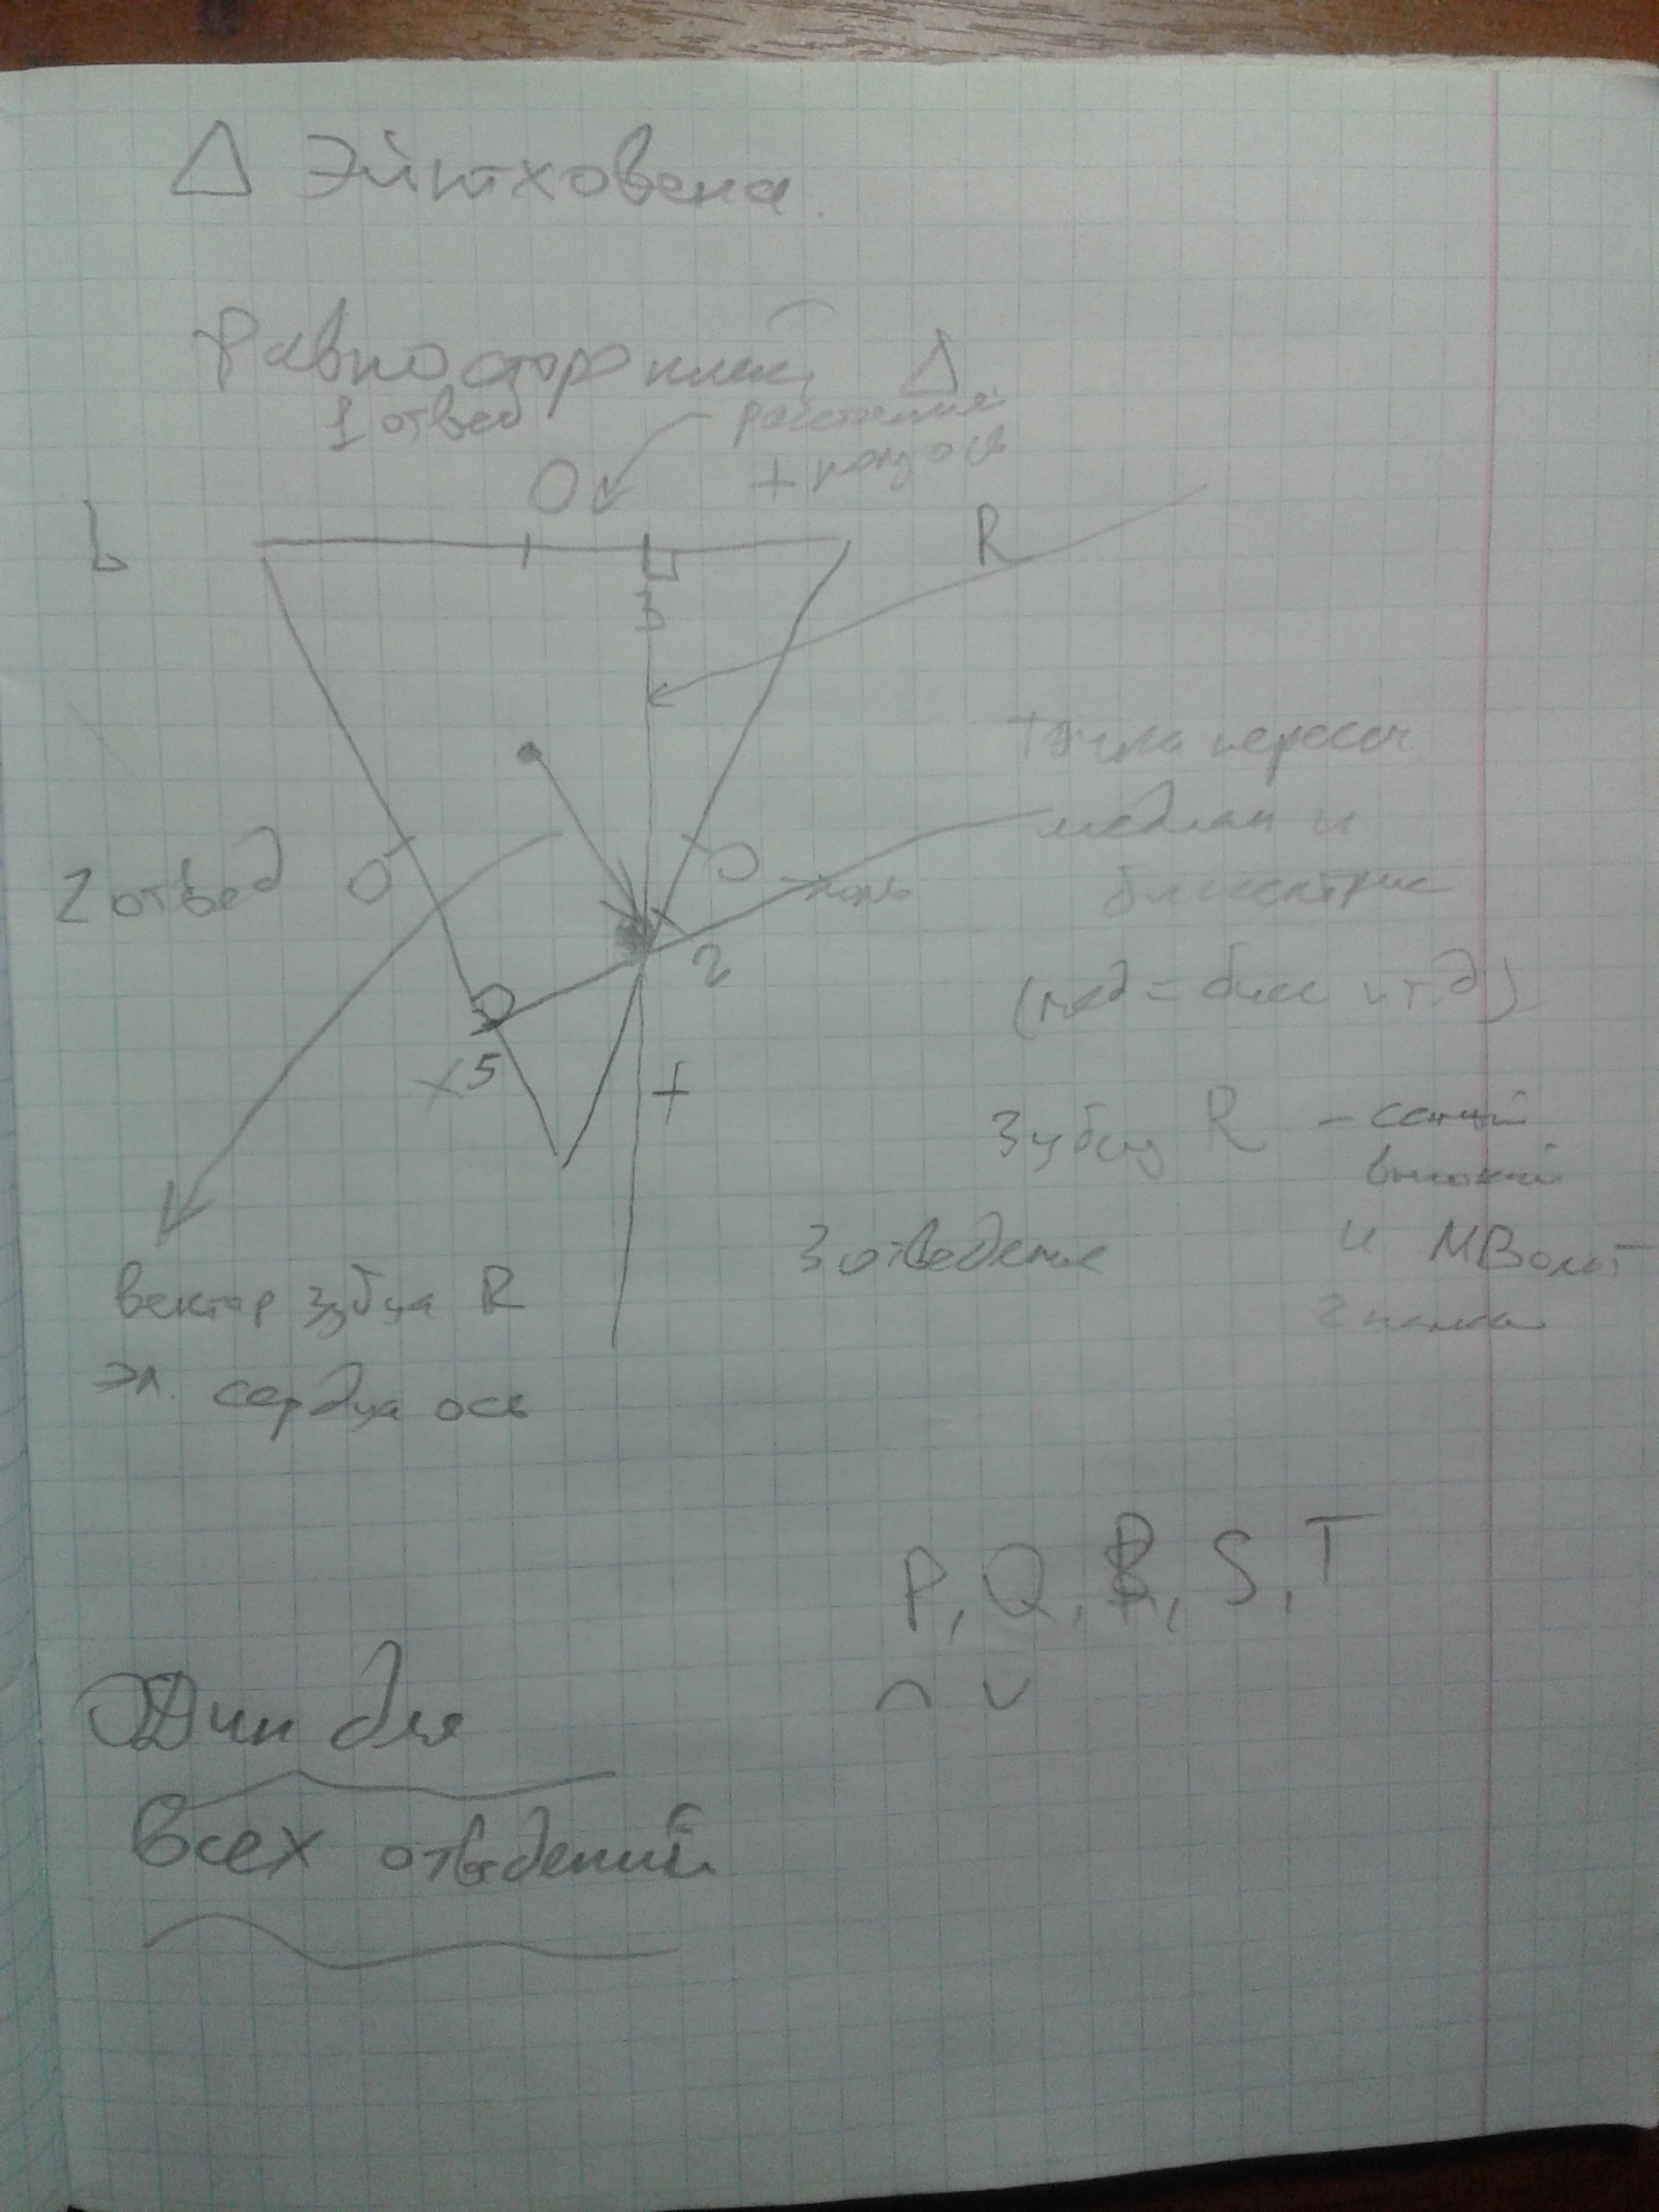 △ Эйнтховена.
Равносторонний △
1 отвед
расстояние
+ полуось
О
L
R
3
Точка пересеч
медиан и
биссектрис
2 отвед
О
О
2
(мед = бисс и т.д)
5
+
Зубец R – самый
высокий
3 отведение
и МВольт
вектор зубца R
эл. сердца ось
P, Q, R, S, T
Один для
всех отведений